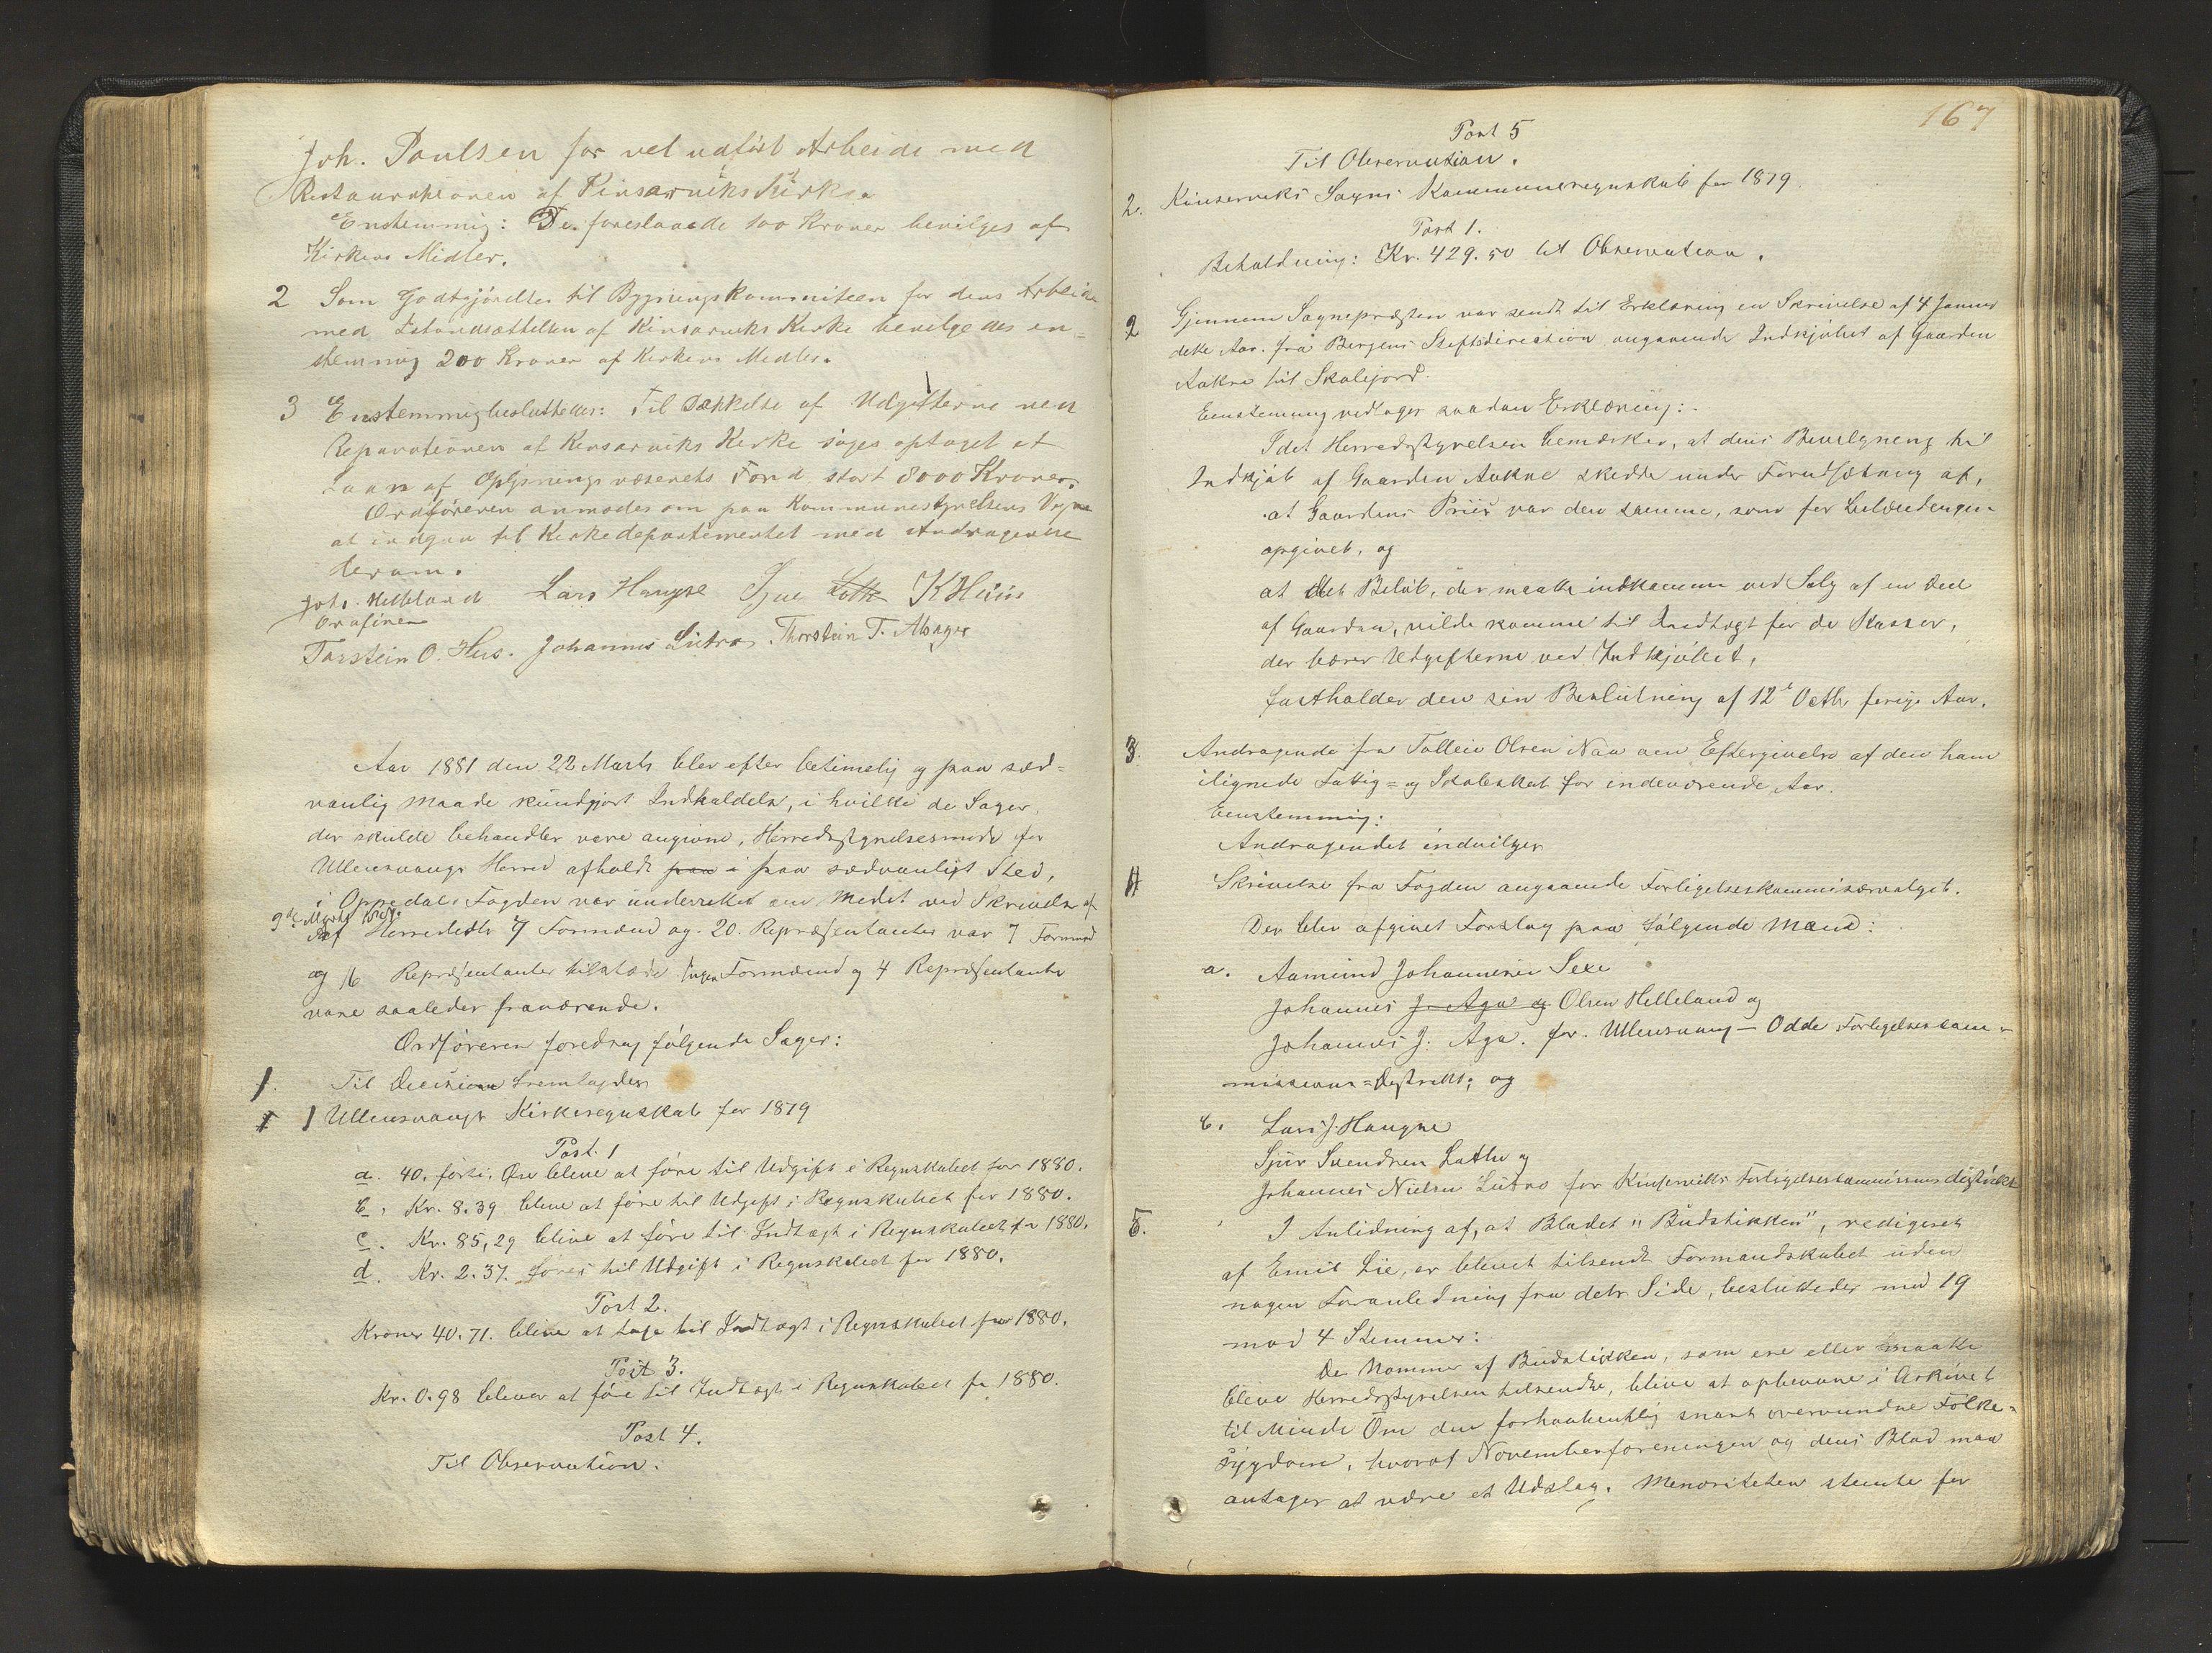 Joh. Paulsen for vel udført Arbeide med
Restaurationen af Kinsarviks Kirke.
Enstemmig: De foreslaaede 100 Kroner bevilges af
Kirkens Midler.
2 Som Godtgjørelse til Bygningskommiteen for dens Arbeide
med Istandsættelsen af Kinsarviks Kirke bevilgedes en=
stemmig 200 Kroner af Kirkens Midler.
3 Enstemmig besluttedes: Til Dækkelse af Udgifterne ved
Reparationen af Kinsarviks Kirke søges optaget et
Laan af Oplysningsvæsenets Fond stort 8000 Kroner.
Ordføreren anmodes om paa Kommunestyrelsens Vegne
at indgaa til Kirkedepartementet med Andragende
derom.
Joh. Helleland Lars Haugse Sjur Lothe K Huus
Ordfører
Torstein O. Hus. Johannes Lutro Thorstein T. Alsager
Aar 1881 den 22 Marts blev efter betimelig og paa sæd=
vanlig Maade kundgjort Indkaldelse, i hvilke de Sager,
der skulde behandles vare angivne, Herredsstyrelsesmøde for
Ullensvangs Herred afholdt paa i paa sædvanligt Sted,
i Oppedal. Fogden var underrettet om Mødet ved Skrivelse af
9de Marts
Af Herredets 7 Formænd og 20 Repræsentanter var 7 Formænd
og 16 Repræsentanter tilstæde. Ingen Formænd og 4 Repræsentanter
vare saaledes fraværende.
Ordføreren foredrog følgende Sager:
1. Til Decision fremlagdes
1 Ullensvangs Kirkeregnskab for 1879
Post. 1
a. 40, førti, Øre blive at føre til Udgift i Regnskabet for 1880.
b. Kr. 8.39 blive at føre til Udgift i Regnskabet for 1880.
c. Kr. 85,29 blive at føre til Indtægt i Regnskabet for 1880.
d. Kr. 2.37. føres til Udgift i Regnskabet for 1880.
Post 2.
Kroner 40.71. blive at tage til Indtægt i Regnskabet for 1880.
Post 3.
Kr. 0.98 bliver at føre til Indtægt i Regnskabet for 1880.
Post 4.
Til Observation.
167
Post 5
Til Observation.
2. Kinserviks Sogns Kommuneregnskab for 1879.
Post 1.
Beholdning: Kr. 429.50 til Observation.
2 Gjennem Sognepræsten var sendt til Erklæring en Skrivelse af 4 Januar
dette Aar. fra Bergens Stiftsdirection angaaende Indkjøbet af Gaarden
Aakre til Skolejord.
Eenstemmig vedtoges saadan Erklæring:
Idet Herredsstyrelsen bemærker, at dens Bevilgning til
Indkjøb af Gaarden Aakre skedde under Forudsætning af,
at Gaardens Priis var den samme, som før Indsendengen
opgivet, og
at det Beløb, der maatte indkomme ved Salg af en Deel
af Gaarden, vilde komme til Indtægt for de Kasser,
der bærer Udgifterne ved Indkjøbet,
fastholder den sin Beslutning af 12te Octbr forige Aar.
3. Andragende fra Tolleiv Olsen Naa om Eftergivelse af den ham
ilignede Fattig= og Skoleskat for indeværende Aar.
Eenstemmig:
Andragendet indvilges
4 Skrivelse fra Fogden angaaende Forligelseskommisærvalget.
Der blev afgivet Forslag paa følgende Mænd:
a. Aamund Johannesen Sexe
Johannes J. Aga og Olsen Helleland og
Johannes J. Aga. for Ullensvang – Odde Forligelsescom=
missions=Distrikt; og
b. Lars J. Haugse
Sjur Svendsen Lothe og
Johannes Nielsen Lutro for Kinserviks Forligelseskommissionsdistrikt
5. I Anledning af, at Bladet "Budstikken", redigeret
af Emil Lie, er blevet tilsendt Formandskabet uden
nogen Foranledning fra dets Side, besluttedes med 19
mod 4 Stemmer:
De Nommer af Budstikken, som ere eller maatte
bleve Herredsstyrelsen tilsendte, blive at opbevare i Arkivet
til Minde Om den forhaabentlig snart overvundne Folke=
sygdom, hvoraf Novemberforeningen og dens Blad man
antager at være et Udslag. Menoriteten stemte for